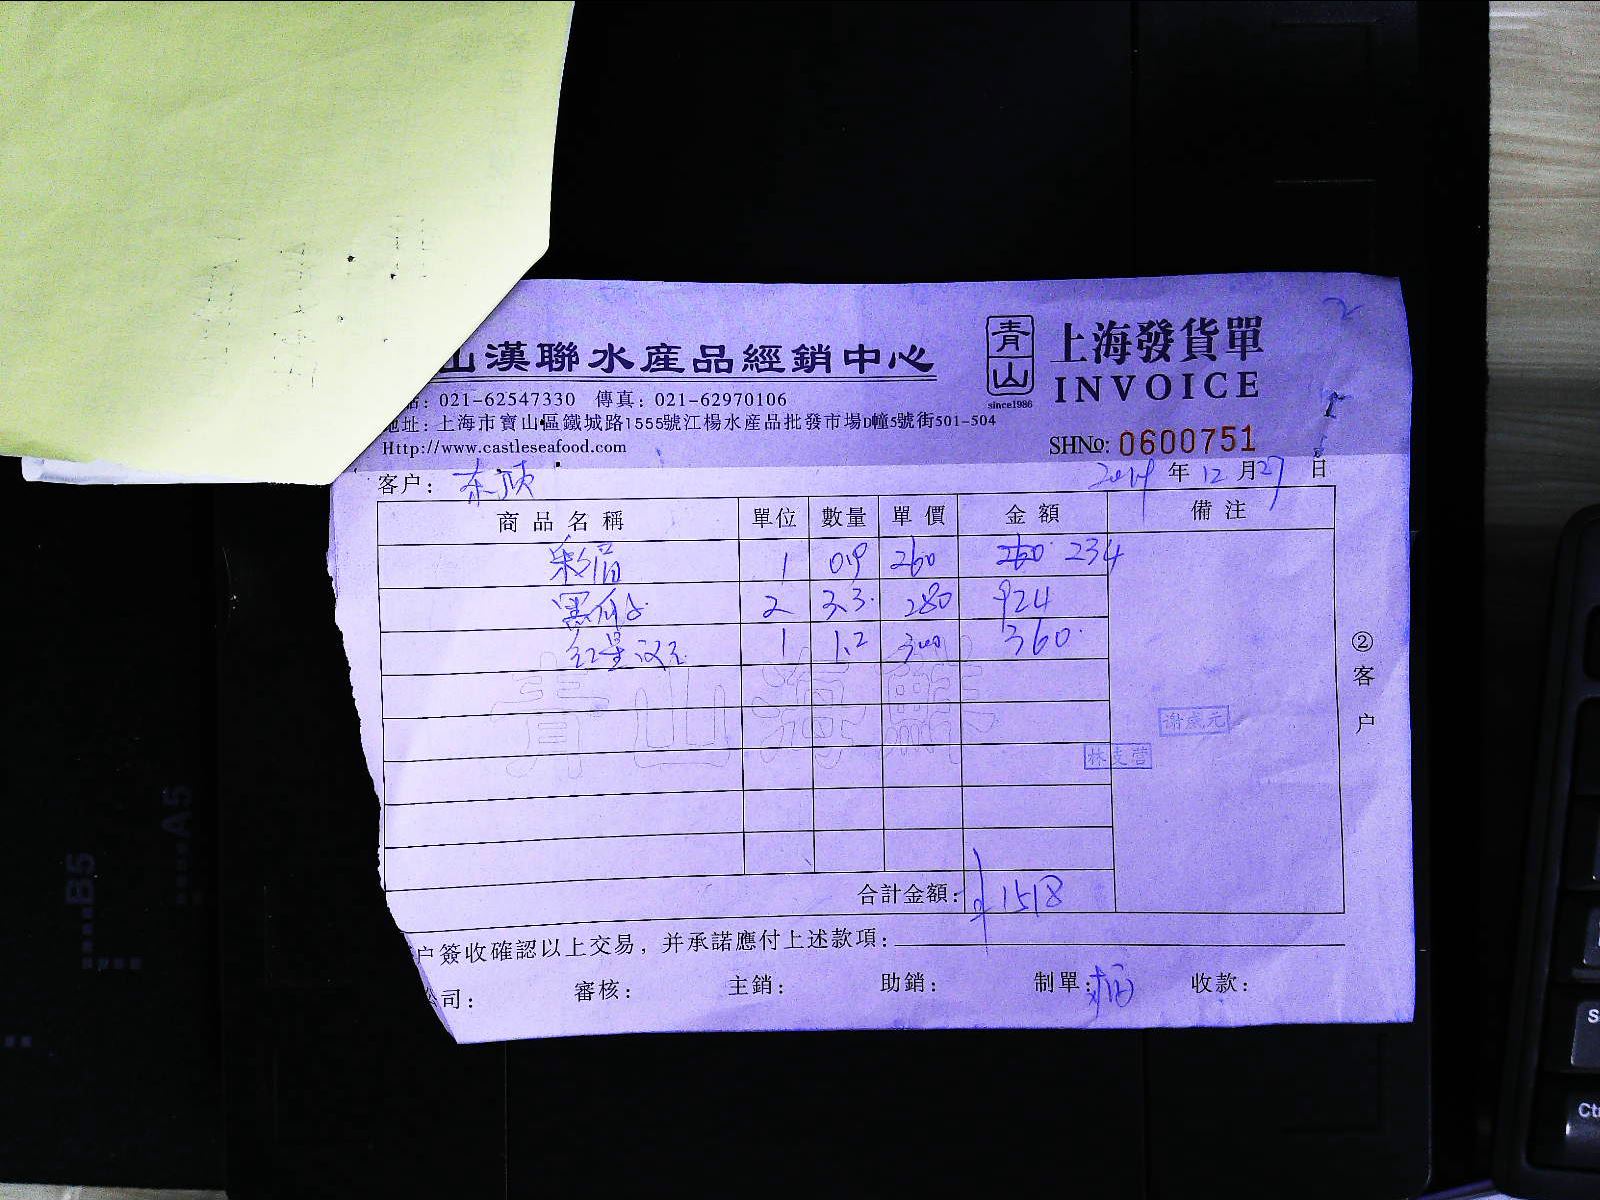 山漢聯水產品經銷中心
青山
since1986
上海發貨單
INVOICE
話: 021-62547330 傳真: 021-62970106
地址: 上海市寶山區鐵城路1555號江楊水產品批發市場D幢5號街501-504
Http://www.castleseafood.com
SHNo: 0600751
客户:
年 12 月 27 日
商品名稱 單位 數量 單價 金額 備注
1 0.9 260 260 234
2 3.3 280 924
红星 1 1.2 300 360
青山海鮮
②客户
合計金額: 1518
户簽收確認以上交易, 并承諾應付上述款項:
公司: 審核: 主銷: 助銷: 制單: 收款:
B5
A5